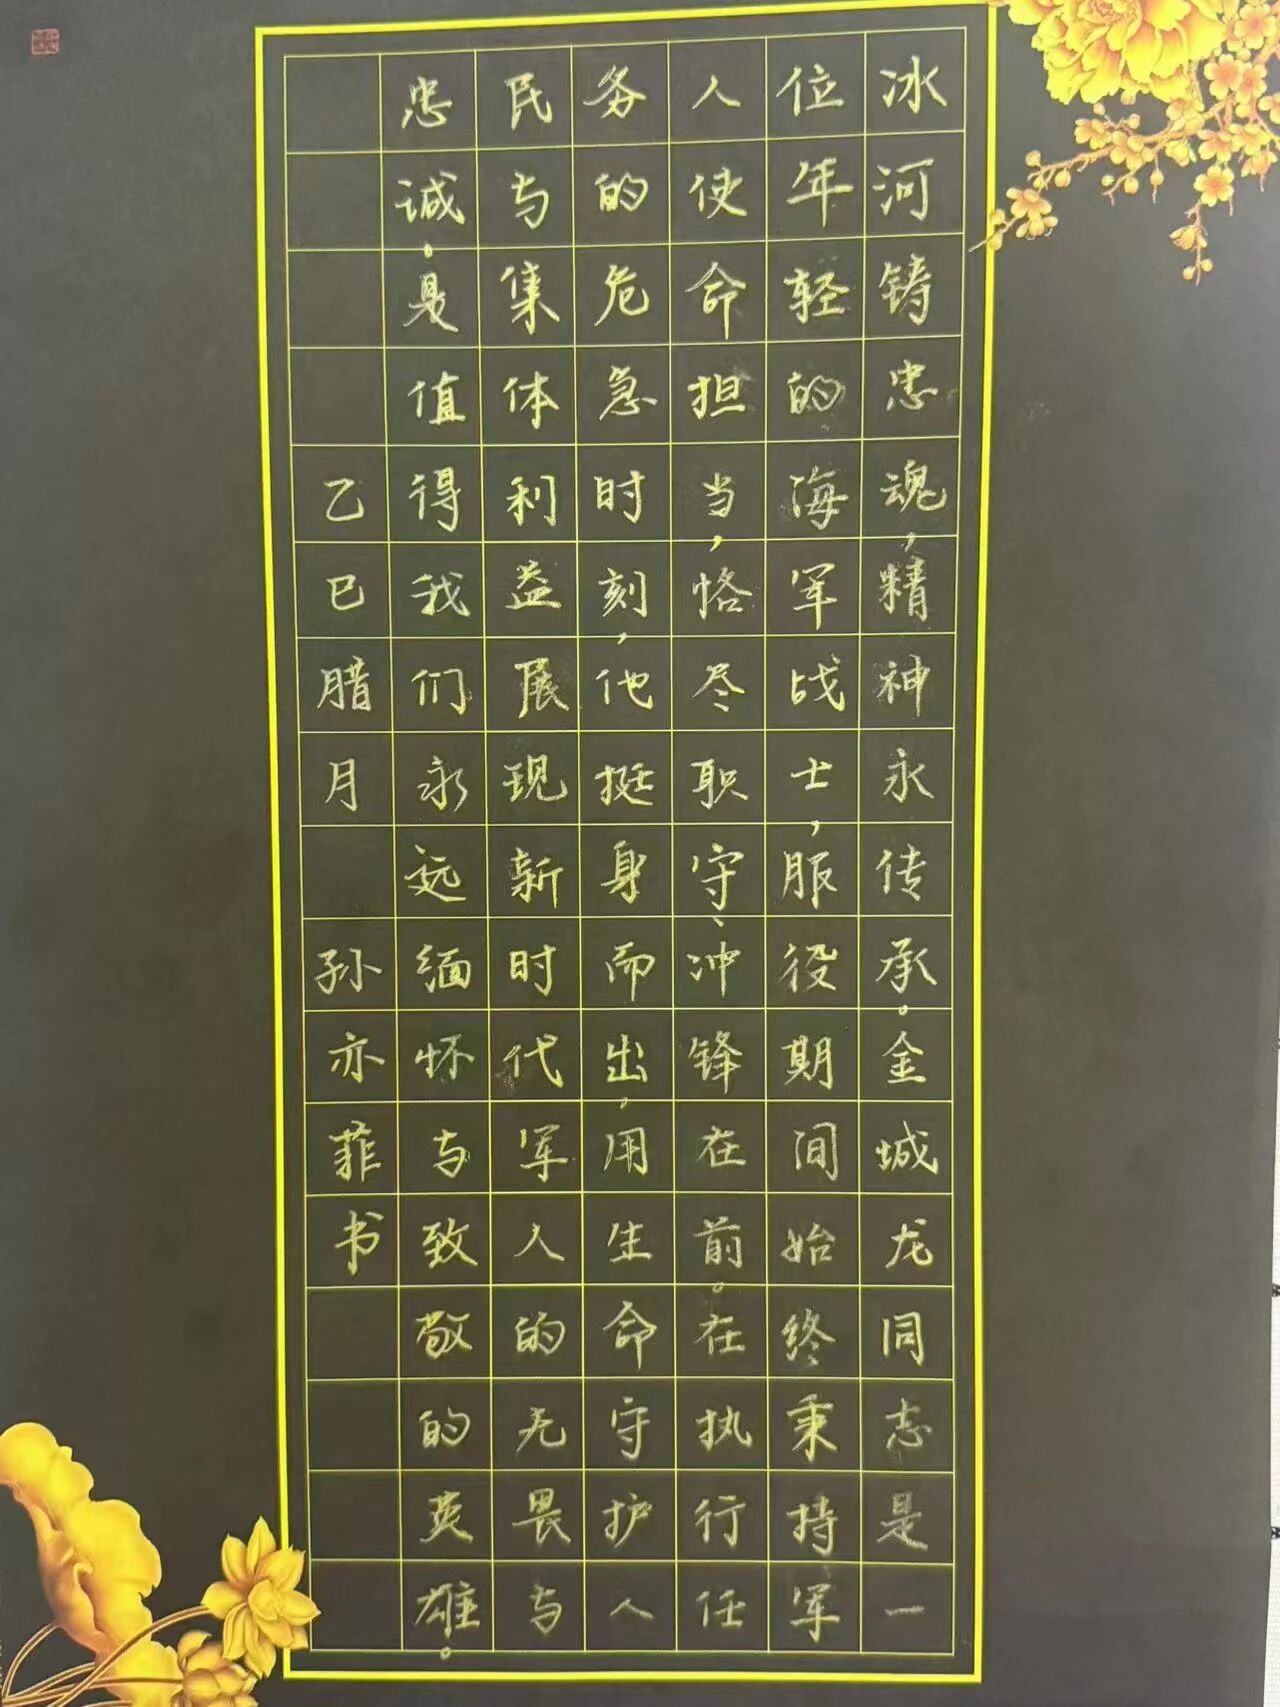 冰河铸忠魂，精神永传承。金城龙同志是一
位年轻的海军战士，服役期间始终秉持军
人使命担当，恪尽职守、冲锋在前。在执行任
务的危急时刻，他挺身而出，用生命守护人
民与集体利益展现新时代军人的无畏与
忠诚。是值得我们永远缅怀与致敬的英雄。
乙巳腊月 孙亦菲书